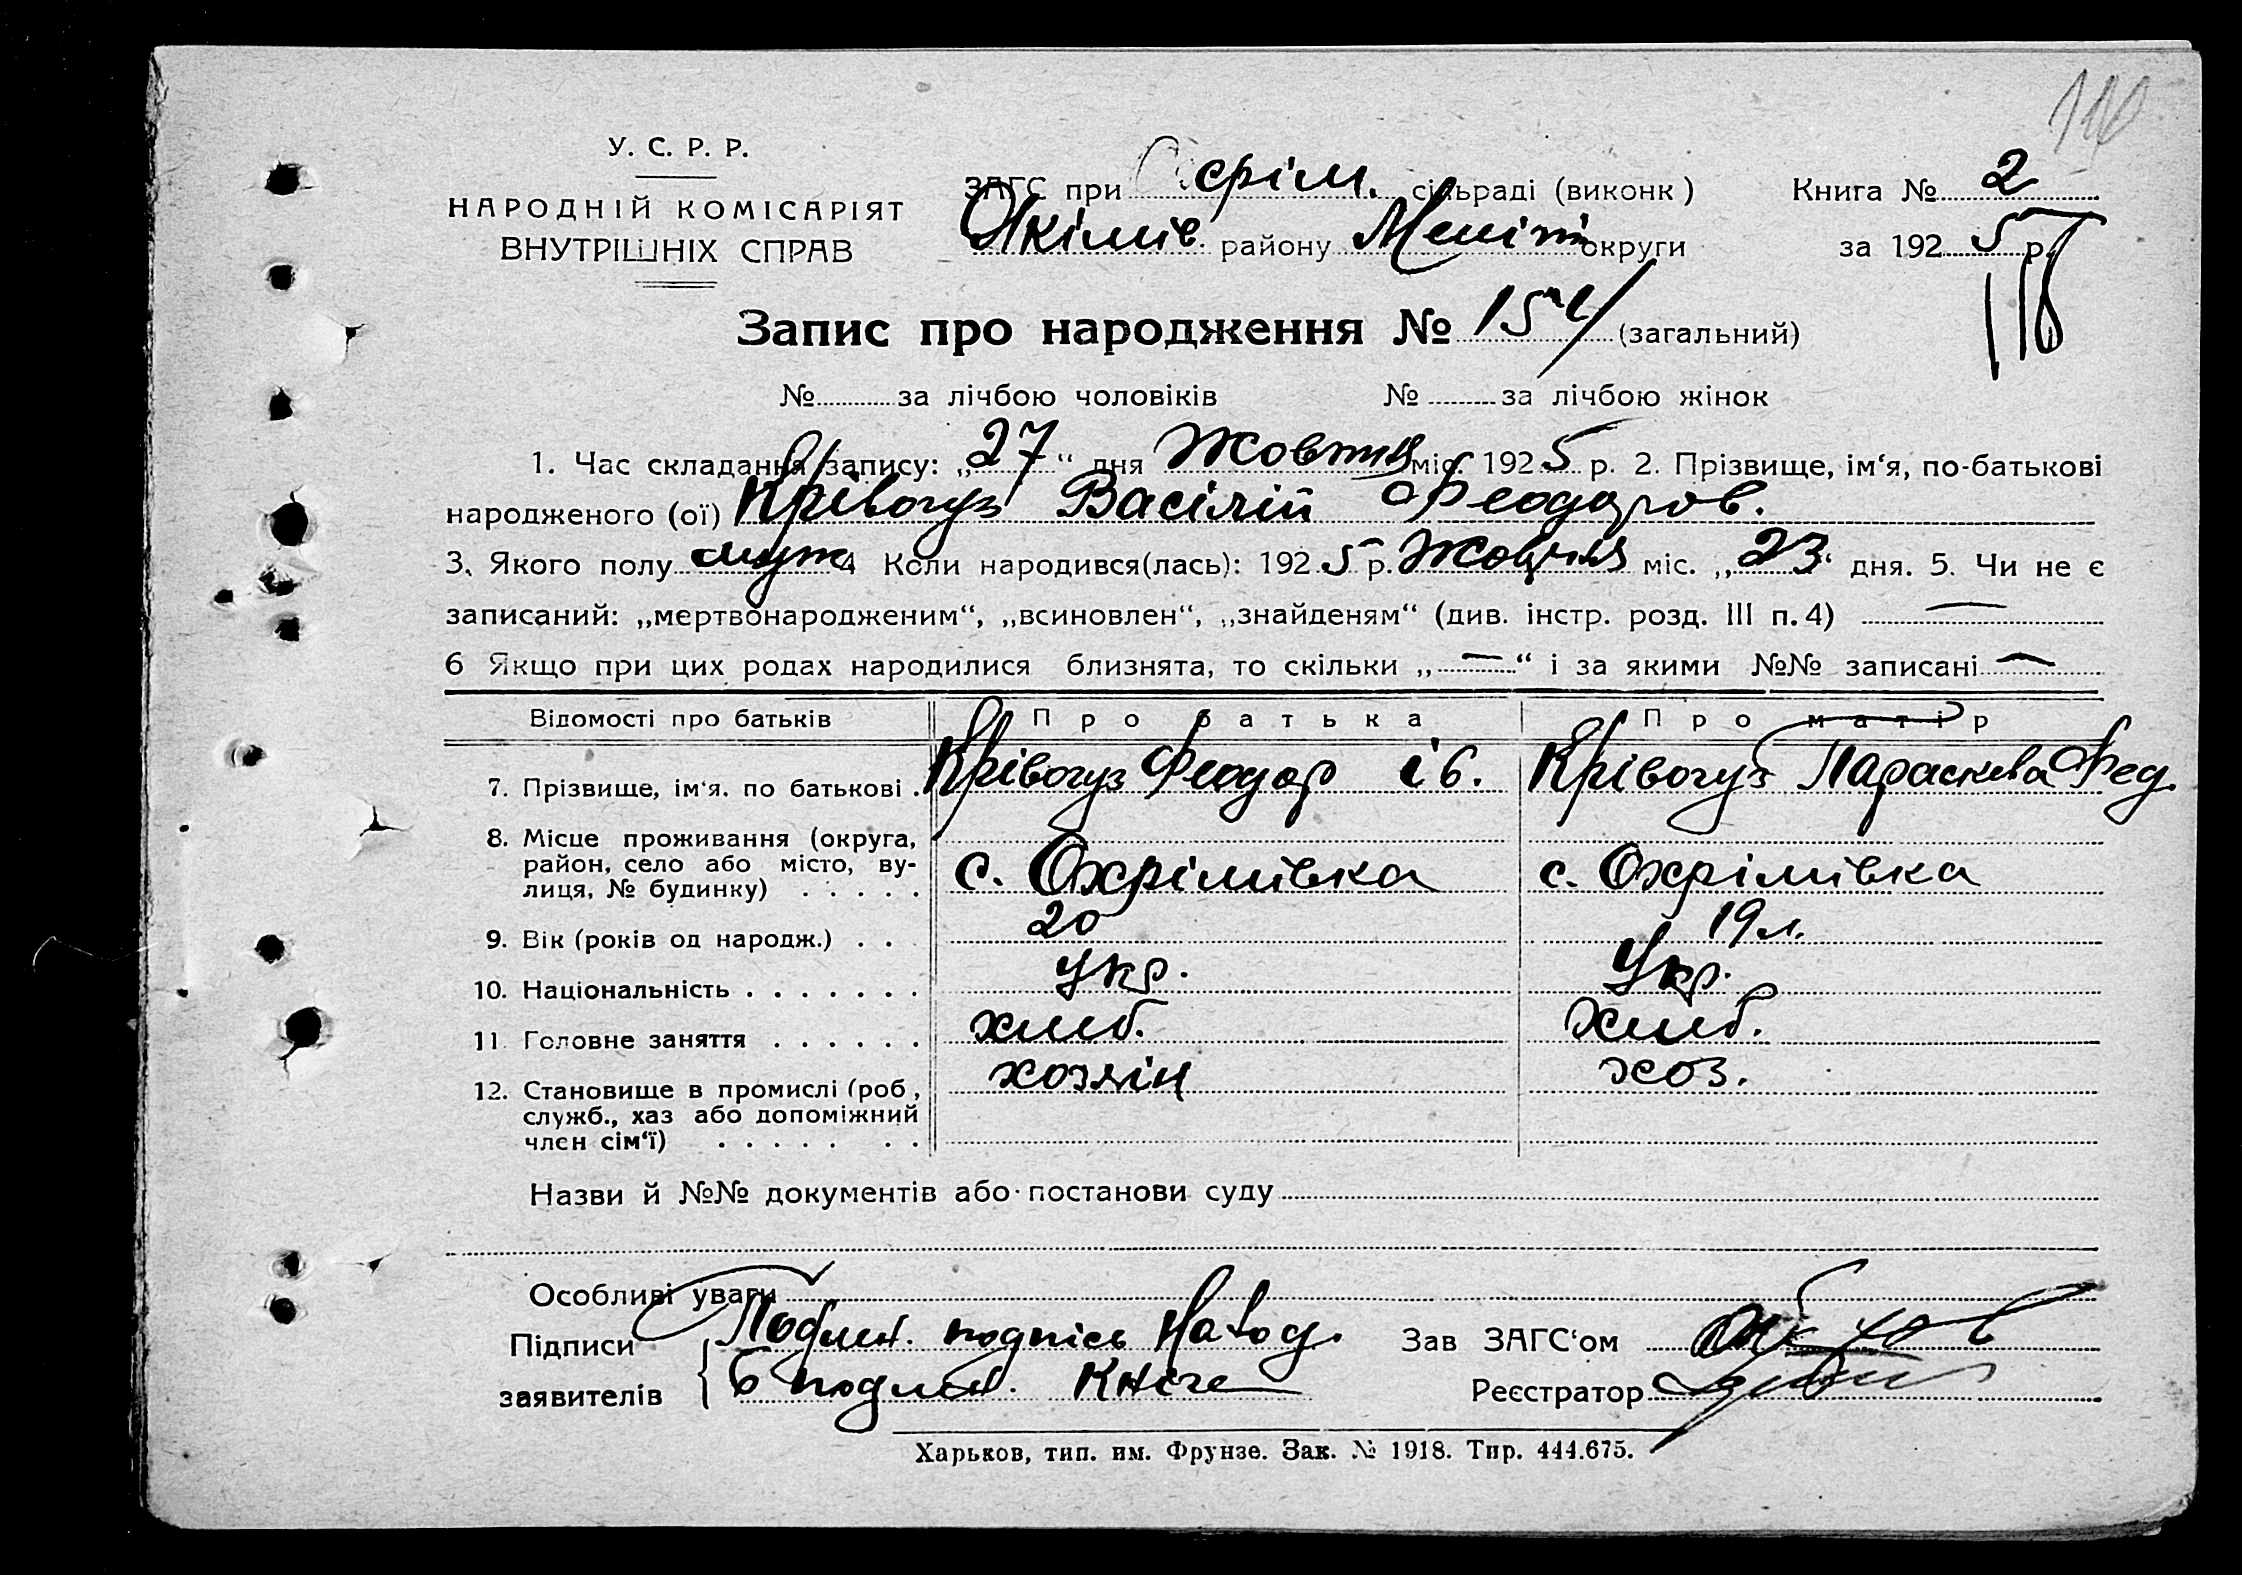 У. С. Р. Р.
НАРОДНІЙ КОМІСАРІЯТ
ВНУТРІШНІХ СПРАВ
ЗАГС при рім. сільраді (виконк)
Якімів. району Меліт округи
Книга № 2
за 1925 р.
116
Запис про народження № 154 (загальний)
№ за лічбою чоловіків № за лічбою жінок
1. Час складання запису: „27“ дня Жовтня міс. 1925 р. 2. Прізвище, ім‘я, по-батькові
народженого (ої) Крівогуз Васілій Феодоров.
3. Якого полу муж 4 Коли народився(лась): 1925 р. міс. „23“ дня. 5. Чи не є
записаний: „мертвонародженим“, „всиновлен“, „знайденям“ (див. інстр. розд. III п. 4) —
6 Якщо при цих родах народилися близнята, то скільки „—“ і за якими №№ записані —
Відомості про батьків Про батька Про матір
7. Прізвище, ім‘я. по батькові . Крівогуз Феодор ів. Крівогуз Параскева Фед.
8. Місце проживання (округа,
район, село або місто, ву-
лиця, № будинку) . . . . . с. Охрімівка с. Охрімівка
9. Вік (років од народж.) . . . 20 19 л.
10. Національність . . . . . . . Укр. Укр.
11. Головне заняття . . . . . . хліб. Хліб.
12. Становище в промислі (роб, хозяїн хоз.
служб., хаз або допоміжний
член сім‘ї) . . . . . . .
Назви й №№ документів або постанови суду
Особливі уваги
Підписи Подлин. подпісь Наход. Зав ЗАГС‘ом
заявителів В подлин. Кніге Реєстратор
Харьков, тип. им. Фрунзе. Зак. № 1918. Тир. 444.675.